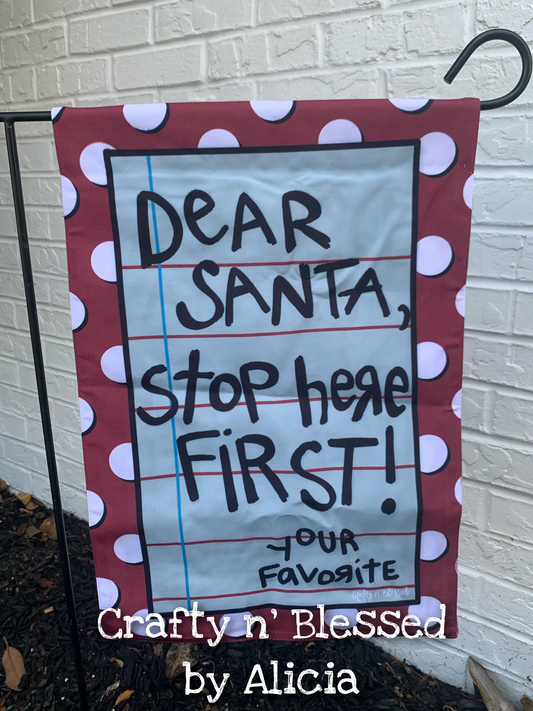 DeAR
SANTA,
Stop here
FiRST!
YOUR
FavoRiTE
Crafty n' Blessed
Crafty n' Blessed
by Alicia